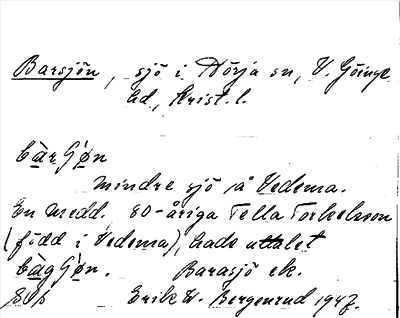 Barsjön, sjö i Nörja sn, V. Göinge
hd, Krist. l.
bàrGø̀n
mindre sjö å Vedema.
En medd. 80-åriga Tella Torkelsson
(född i Vedema), hade uttalet
bàgGø̀n. Barasjö ek.
Erik W. Bergenrud 1947.